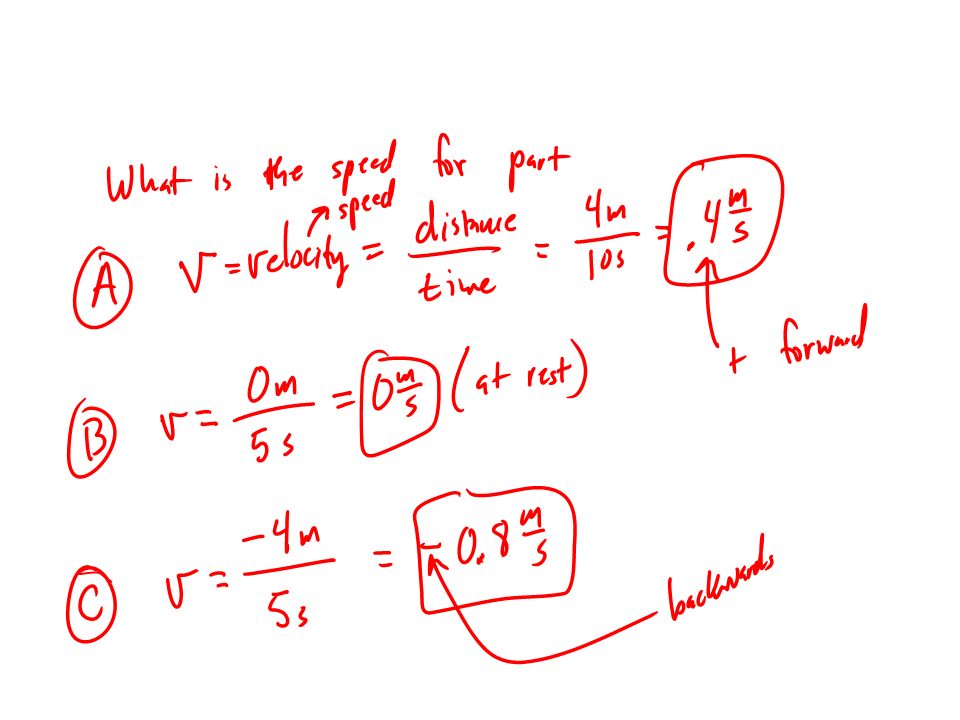 What is the speed for part
speed
A v = velocity = distance / time = 4m / 10s = .4 m/s
+ forward
B v = 0m / 5s = 0 m/s (at rest)
C v = -4m / 5s = -0.8 m/s
backwards